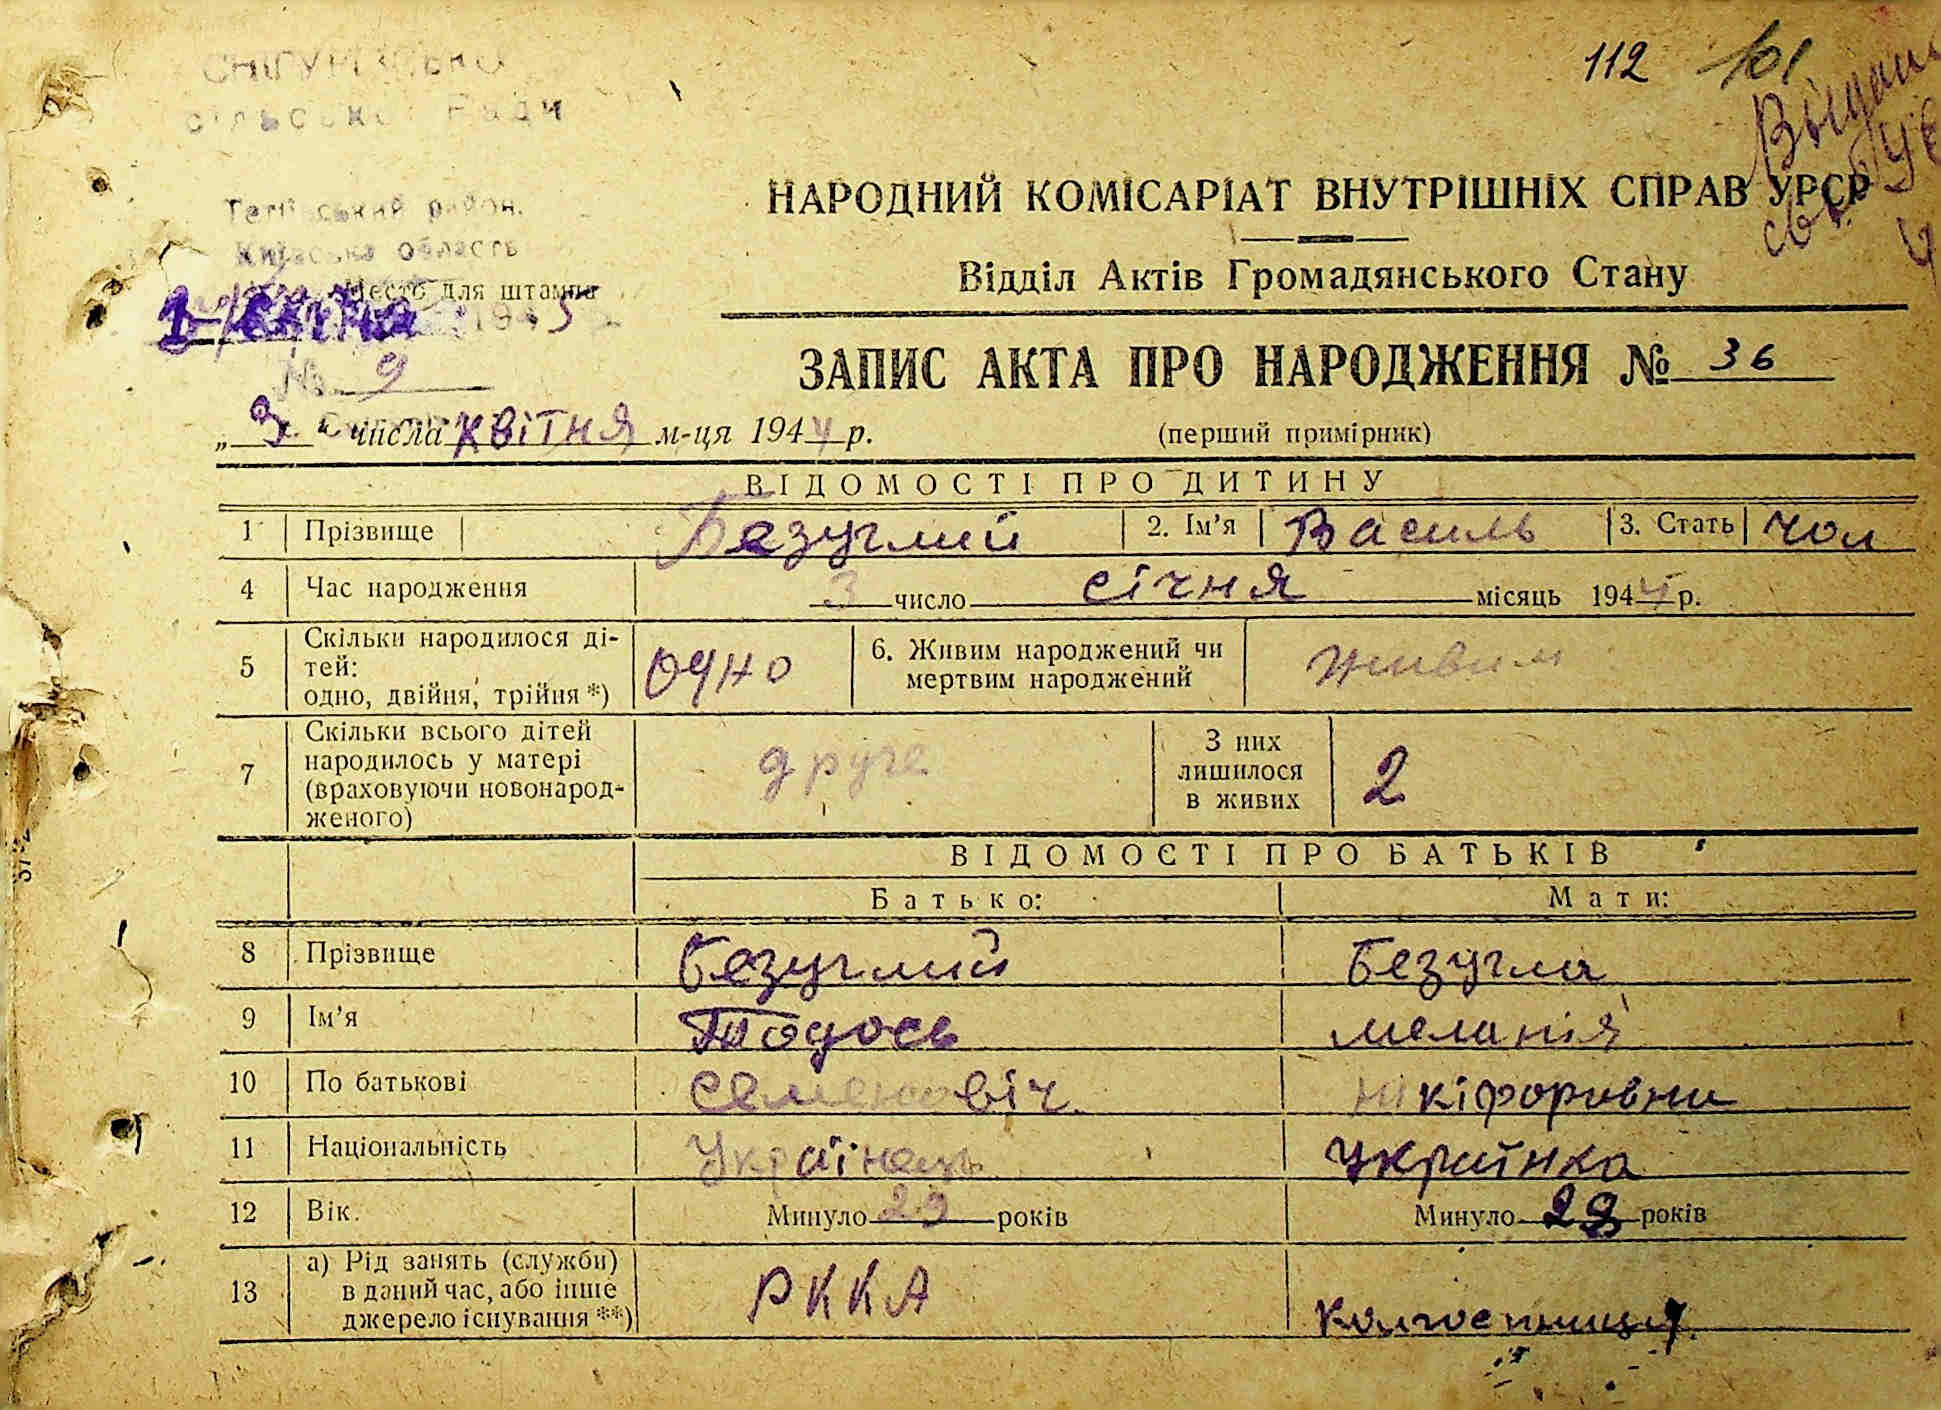 112 101
Видано
сільської Ради
район.
Київська область
Место для штампа
№ 9
НАРОДНИЙ КОМІСАРІАТ ВНУТРІШНІХ СПРАВ УРСР
Відділ Актів Громадянського Стану
ЗАПИС АКТА ПРО НАРОДЖЕННЯ № 36
„3“ числа квітня м-ця 1944 р. (перший примірник)
ВІДОМОСТІ ПРО ДИТИНУ
1 Прізвище Безуглий 2. Ім'я Василь 3. Стать чол
4 Час народження 3 число січня місяць 1944 р.
5 Скільки народилося дітей: одно, двійня, трійня *) одно 6. Живим народжений чи мертвим народжений живим
7 Скільки всього дітей народилось у матері (враховуючи новонародженого) друге З них лишилося в живих 2
ВІДОМОСТІ ПРО БАТЬКІВ
Батько: Мати:
8 Прізвище Безуглий Безугла
9 Ім'я Тодось Меланія
10 По батькові Семеновіч Нікіфоровни
11 Національність Українець Українка
12 Вік. Минуло 29 років Минуло 29 років
13 а) Рід занять (служби) в даний час, або інше джерело існування **) РККА колгоспниця